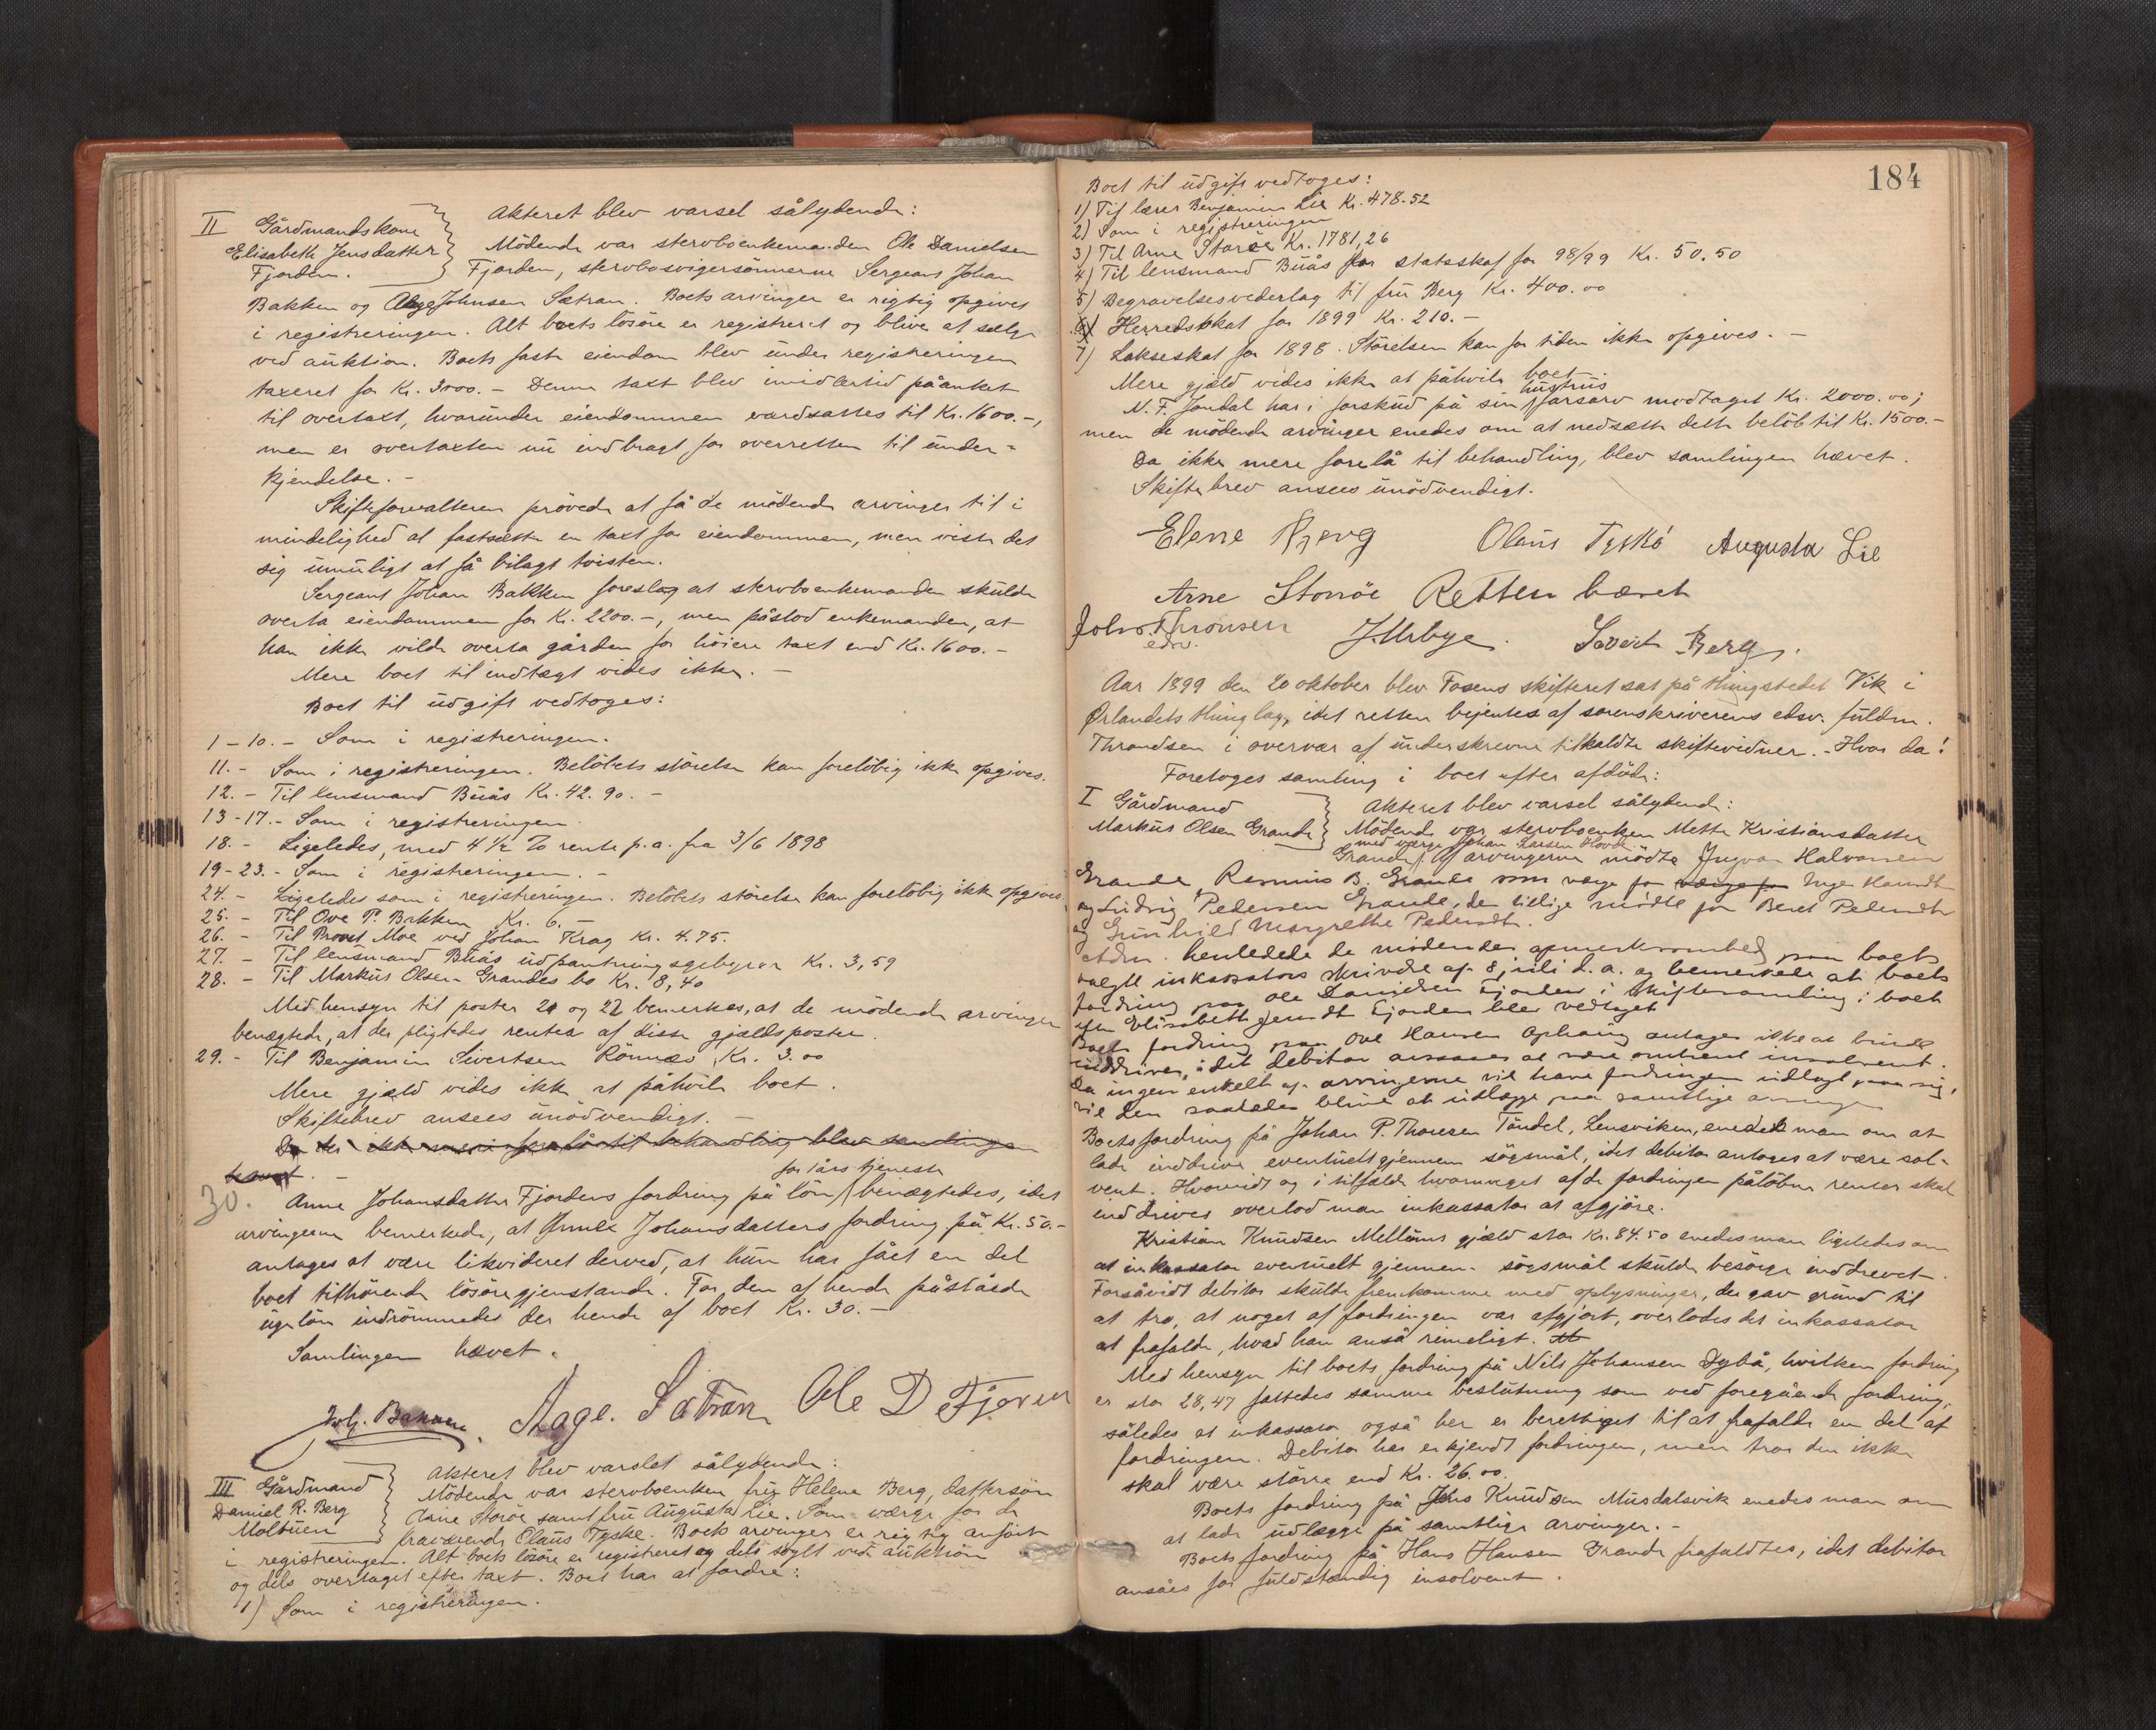 II Gårdmandskone
Elisabeth Jensdatter
Fjorden.
Akteret blev varsel sålydende:
Mödende var stervboenkemanden Ole Danielsen
Fjorden, stervbosvigersönnerne Sergeant Johan
Bakken og Aage Johnsen Sætran. Boets arvinger er rigtig opgivet
i registreringen. Alt boets lösöre er registreret og bliver at sælge
ved auktion. Boets faste eiendom blev under registreringen
taxeret for Kr. 3000.- Denne taxt blev imidlertid påanket
til overtaxt, hvorunder eiendommen værdsattes til Kr. 1600.-,
men er overtaxten nu indbragt for overretten til under-
kjendelse.-
Skifteforvalteren prövede at få de mödende arvinger til i
mindelighed at fastsætte en taxt for eiendommen, men viste det
sig umuligt at få bilagt tvisten.
Sergeant Johan Bakken foreslog at stervboenkemanden skulde
overta eiendommen for Kr. 2200.-, men påstod enkemanden, at
han ikke vilde overta gården for höiere taxt end Kr. 1600.-
Mere boet til indtægt vides ikke.-
Boet til udgift vedtoges:
1-10.- Som i registreringen.
11.- Som i registreringen. Belöbets störelse kan forelöbig ikke opgives.
12.- Til lensmand Buås Kr. 42.90.-
13-17.- Som i registreringen
18.- Ligeledes, med 4 1/2 % rente p.a. fra 3/6 1898
19-23.- Som i registreringen.-
24.- Ligeledes som i registreringen. Belöbets störelse kan forelöbig ikke opgives.
25.- Til Ove P. Bakken Kr. 6.-
26.- Til Provst Moe ved Johan Krag Kr. 4.75.
27.- Til lensmand Buås udpantningsgebyrer Kr. 3,59
28.- Til Markus Olsen Grandes bo Kr. 8,40
Med hensyn til poster 20 og 22 bemerkes, at de mödende arvinger
benægtede, at der pligtedes renter af disse gjældsposter.
29.- Til Benjamin Sivertsen Rönnes Kr. 3.00
Mere gjæld vides ikke at påhvile boet.
Skiftebrev ansees unödvendigt.-
Da der ikke mere forelå til behandling blev samlingen
hævet.-
30. Anne Johansdatter Fjordens fordring på lön for 1 års tjeneste benægtedes, idet
arvingerne bemerkede, at Anne Johansdatters fordring på Kr. 50.-
antages at være likvideret derved, at hun har fået en del
boet tilhörende lösöregjenstande. For den af hende påståede
ugelön indrömmedes der hende af boet Kr. 30.-
Samlingen hævet.
Joh. Bakken. Aage. Sætran Ole D Fjorden
III Gårdmand
Daniel R. Berg
Moltuen
Akteret blev varslet sålydende:
Mödende var stervboenken fru Helene Berg, dattersön
Arne Störöe samt fru Augusta Lie. Som værge for de
fraværende Olaus Tyske. Boets arvinger er rigtig anfört
i registreringen. Alt boets lösöre er registreret og dels solgt ved auktion
og dels overtaget efter taxt. Boet har at fordre:
1) Som i registreringen.
184
Boet til udgift vedtoges:
1) Til lærer Benjamin Lie Kr. 478.52
2) Som i registreringen
3) Til Arne Storöe Kr. 1781,26
4) Til lensmand Buås for statsskat for 98/99 Kr. 50.50
5) Begravelsesvederlag til fru Berg Kr. 400.00
6) Herredsskat for 1899 Kr. 210.-
7) Lakseskat for 1898. Störelsen kan for tiden ikke opgives.-
Mere gjæld vides ikke at påhvile boet
N. F. Jondal har i forskud på sin hustrus farsarv modtaget Kr. 2000.00;
men de mödende arvinger enedes om at nedsætte dette belöb til Kr. 1500.-
Da ikke mere forelå til behandling, blev samlingen hævet.
Skiftebrev ansees unödvendigt.
Elene Berg Olaus Tyskö Augusta Lie
Arne Storröe Retten hævet
Johs. Thronsen
edsv.
J. Urbye. Sivert Berg.
Aar 1899 den 20 oktober blev Fosens skifteret sat på thingstedet Vik i
Ørlandets thinglag, idet retten bejentes af sorenskriverens edsv. fuldm.
Throndsen i overvær af underskrevne tilkaldte skiftevidner.- Hvor da:
Foretoges samling i boet efter afdöde:
I Gårdmand
Markus Olsen Grande
Akteret blev varsel sålydende:
Mödende var stervboenken Mette Kristiansdatter
Grande med værge Johan Larsen Hovde. Af arvingerne mödte Ingvar Halvorsen
Grande, Rasmus B. Grande som værge for værge for Inger Hansdt
og Ludvig Pedersen Grande, der tillige mödte for Beret Pedersdt
og Gunhild Margrethe Pedersdt.
henledede de mödendes opmerksomhed paa boets
valgte inkassators skrivelse af 8 juli d.a. og bemerkede at boets
fordring paa Ole Danielsen Fjorden i skiftesamling i boet
efter Elisabeth Jensdt Fjorden blev vedtaget
Boets fordring paa Ove Hansen Ophaug antages ikke at burde
inddrives, idet debitor ansaaes at være omtrent insolvent.
Da ingen enkelt af arvingerne vil have fordringen udlagt paa sig,
vil den saaledes blive at udlægge paa samtlige arvinger
Boets fordring på Johan P. Thoresen Töndel, Lensviken, enedes man om at
lade inddrive eventuelt gjennem sögsmål, idet debitor antages at være sol-
vent. Hvorvidt og i tilfælde hvormeget af de fordringen pålöbne renter skal
inddrives overlod man inkassator at afgjöre.
Kristian Knudsen Mellems gjæld stor Kr. 84.50 enedes man ligeledes om
at inkassator eventuelt gjennem sögsmål skulde besörge inddrevet.
Forsåvidt debitor skulde fremkomme med oplysninger, der gav grund til
at tro, at noget af fordringen var afgjort, overlodes det inkassator
at frafalde, hvad han anså rimeligt.
Med hensyn til boets fordring på Nils Johansen Dybå, hvilken fordring
er stor 28,47 fattedes samme beslutning som ved foregående fordring,
således at inkassator også her er berettiget til at frafalde en del af
fordringen. Debitor har erkjendt fordringen, men tror den ikke
skal være större end Kr. 26.00.
Boets fordring på Jens Knudsen Musdalsvik enedes man om
at lade udlægge på samtlige arvinger.-
Boets fordring på Hans Hansen Grande frafaldtes, idet debitor
ansåes for fuldstændig insolvent.